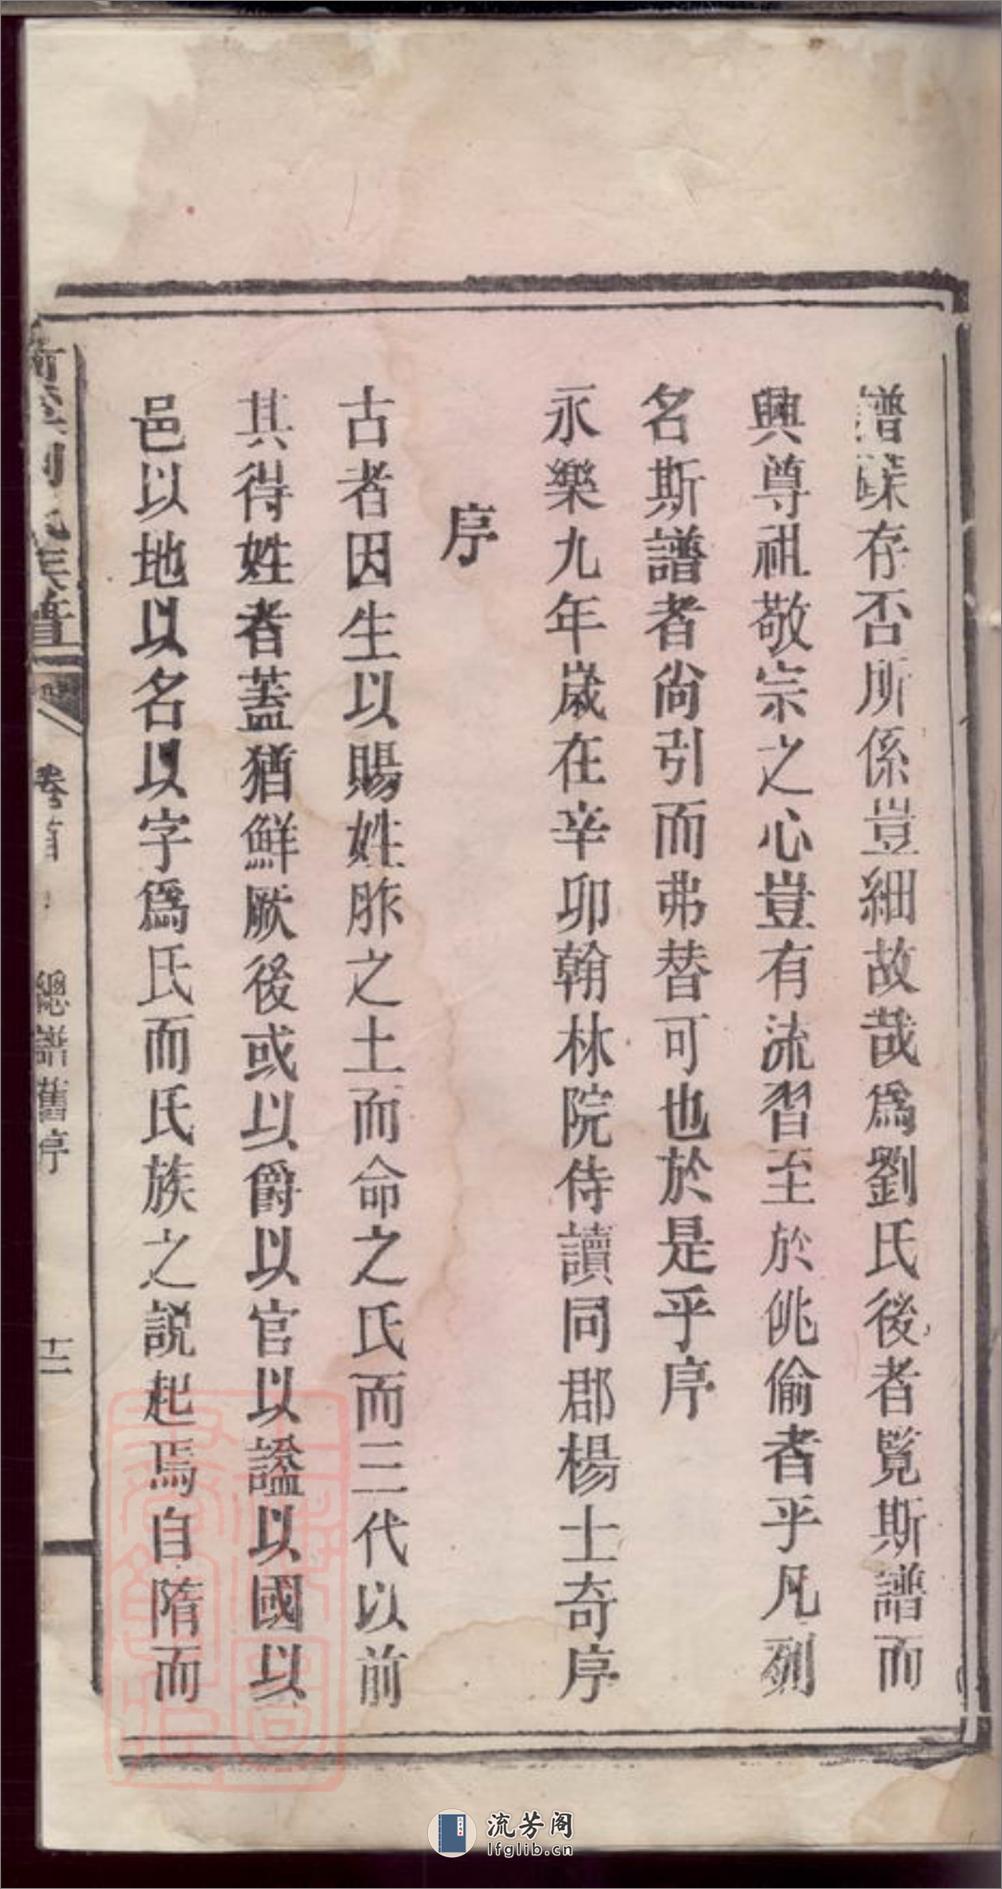 譜牒存否所係豈細故哉爲劉氏後者覧斯譜而
興尊祖敬宗之心豈有流習至於佻偷者乎凡列
名斯譜者尙引而弗替可也於是乎序
永樂九年歲在辛卯翰林院侍讀同郡楊士奇序
序
古者因生以賜姓胙之土而命之氏而三代以前
其得姓者蓋猶鮮厥後或以爵以官以謚以國以
邑以地以名以字爲氏而氏族之説起焉自隋而
劉氏族譜
卷首
總譜舊序
十二
上海圖書館藏
流芳阁
lfglib.cn